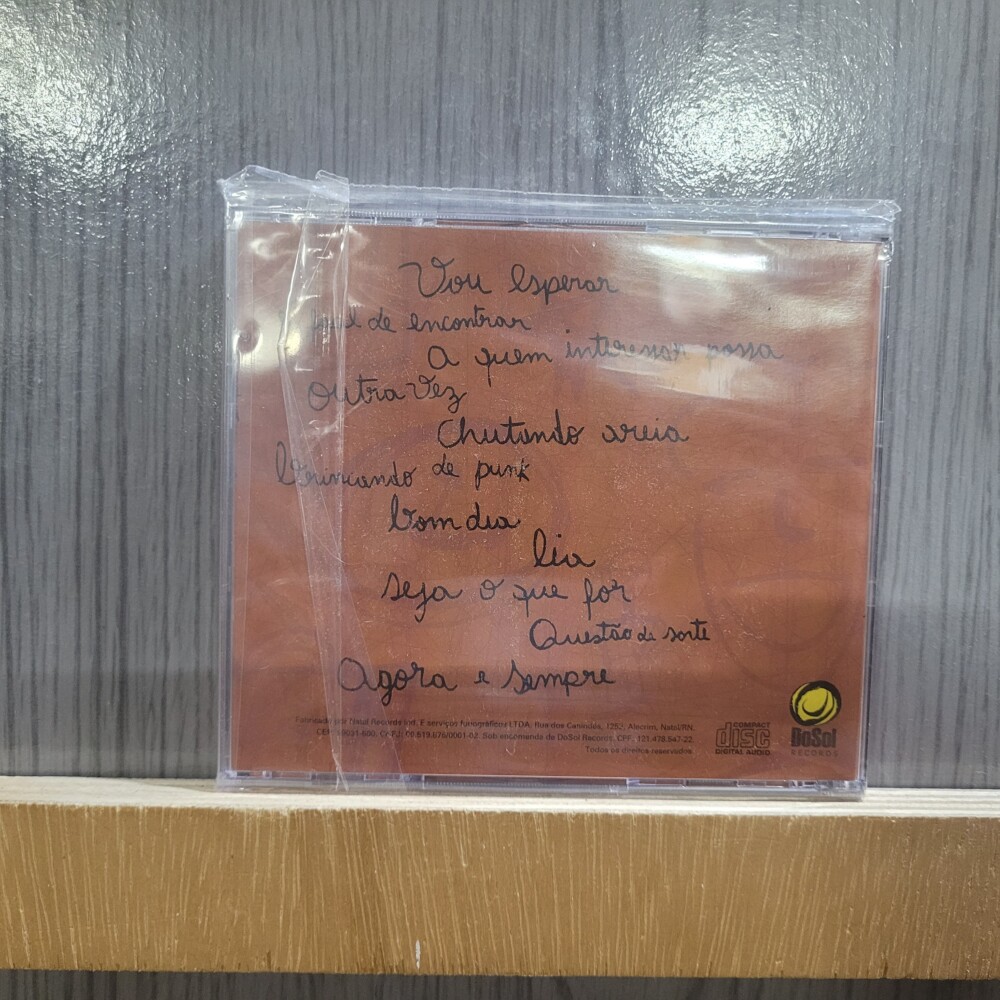 Vou esperar
fácil de encontrar
A quem interessar possa
Outra vez
Chutando areia
brincando de punk
bom dia
lia
seja o que for
Questão de sorte
Agora e sempre
Fabricado por Nasul Records Ind. E serviços fonográficos LTDA, Rua dos Canindés, 1253, Alecrim, Natal/RN.
Sob encomenda de DoSol Records, CPF: 121.478.547-22.
Todos os direitos reservados.
COMPACT
disc
DIGITAL AUDIO
DoSol
RECORDS